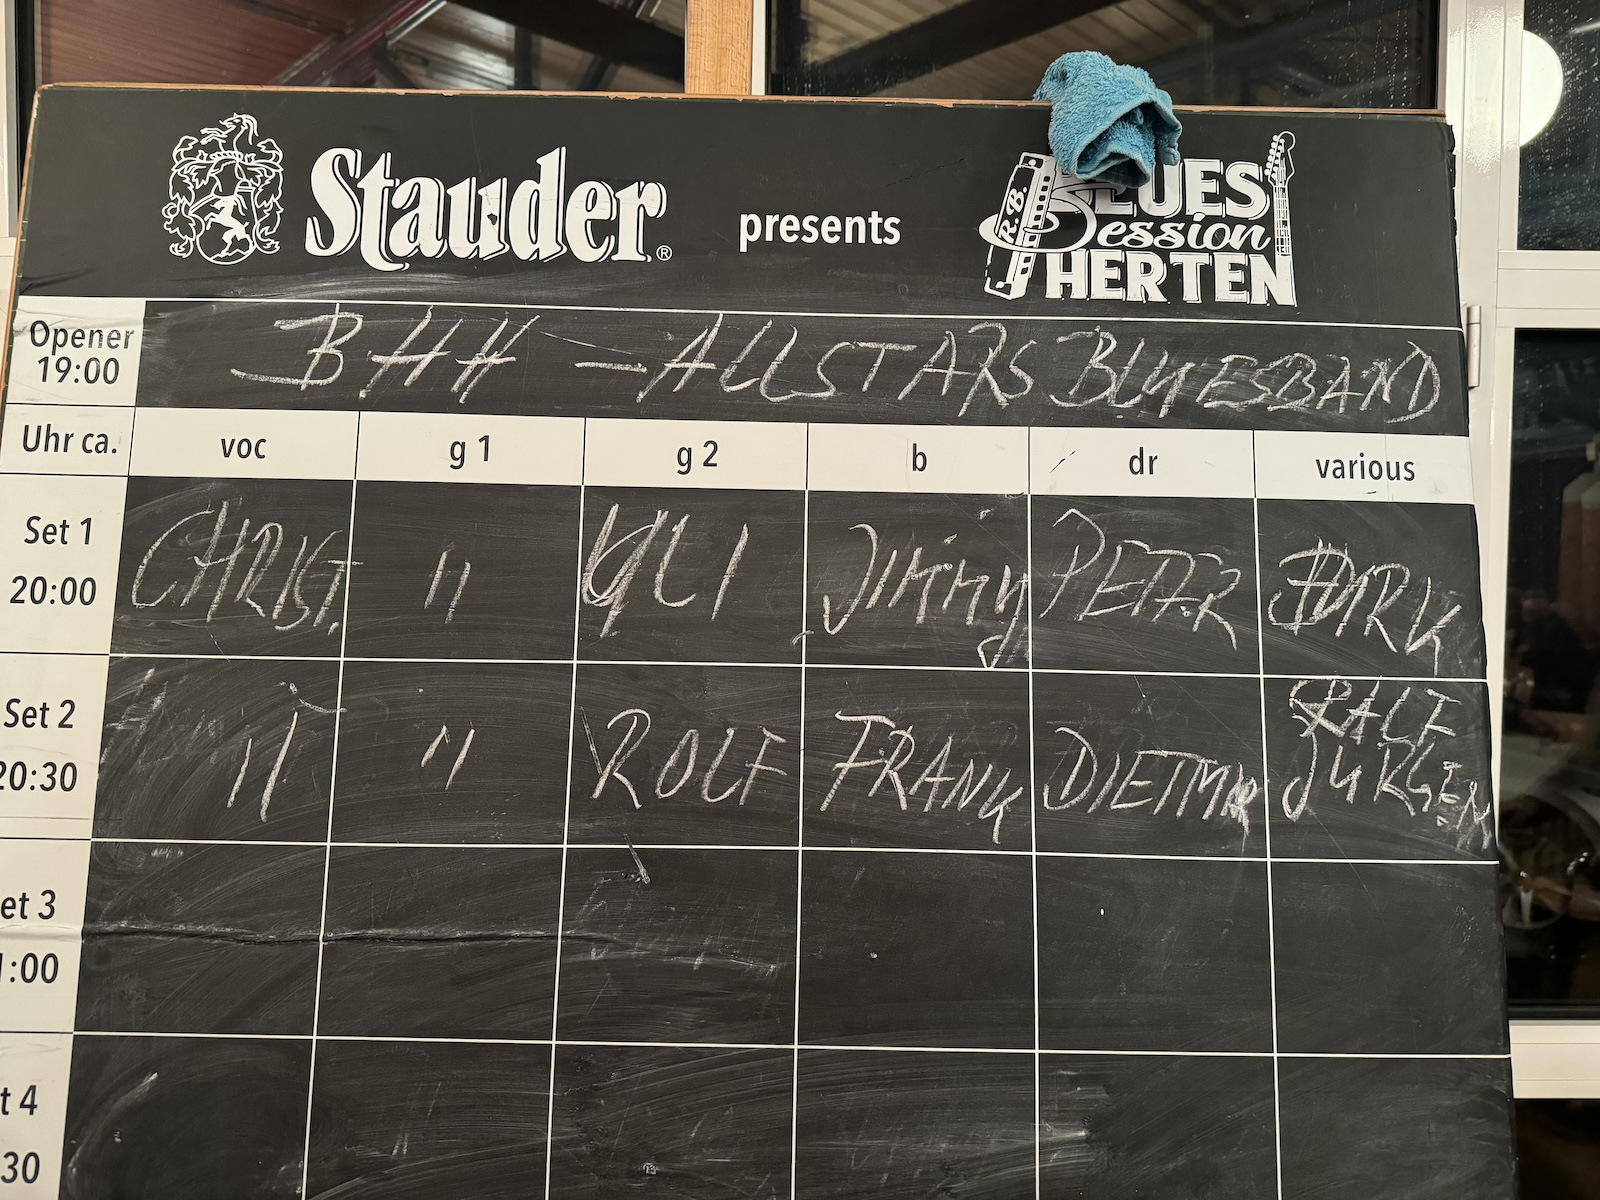 Stauder® presents R.B. BLUES
Session
HERTEN
Opener
19:00
BHH – ALLSTARS BLUESBAND
Uhr ca. voc g 1 g 2 b dr various
Set 1
20:00
CHRIST. " ULI Jimmy PETER DIRK
Set 2
20:30
" " ROLF FRANK DIETMAR RALF
JURGEN
et 3
1:00
t 4
30